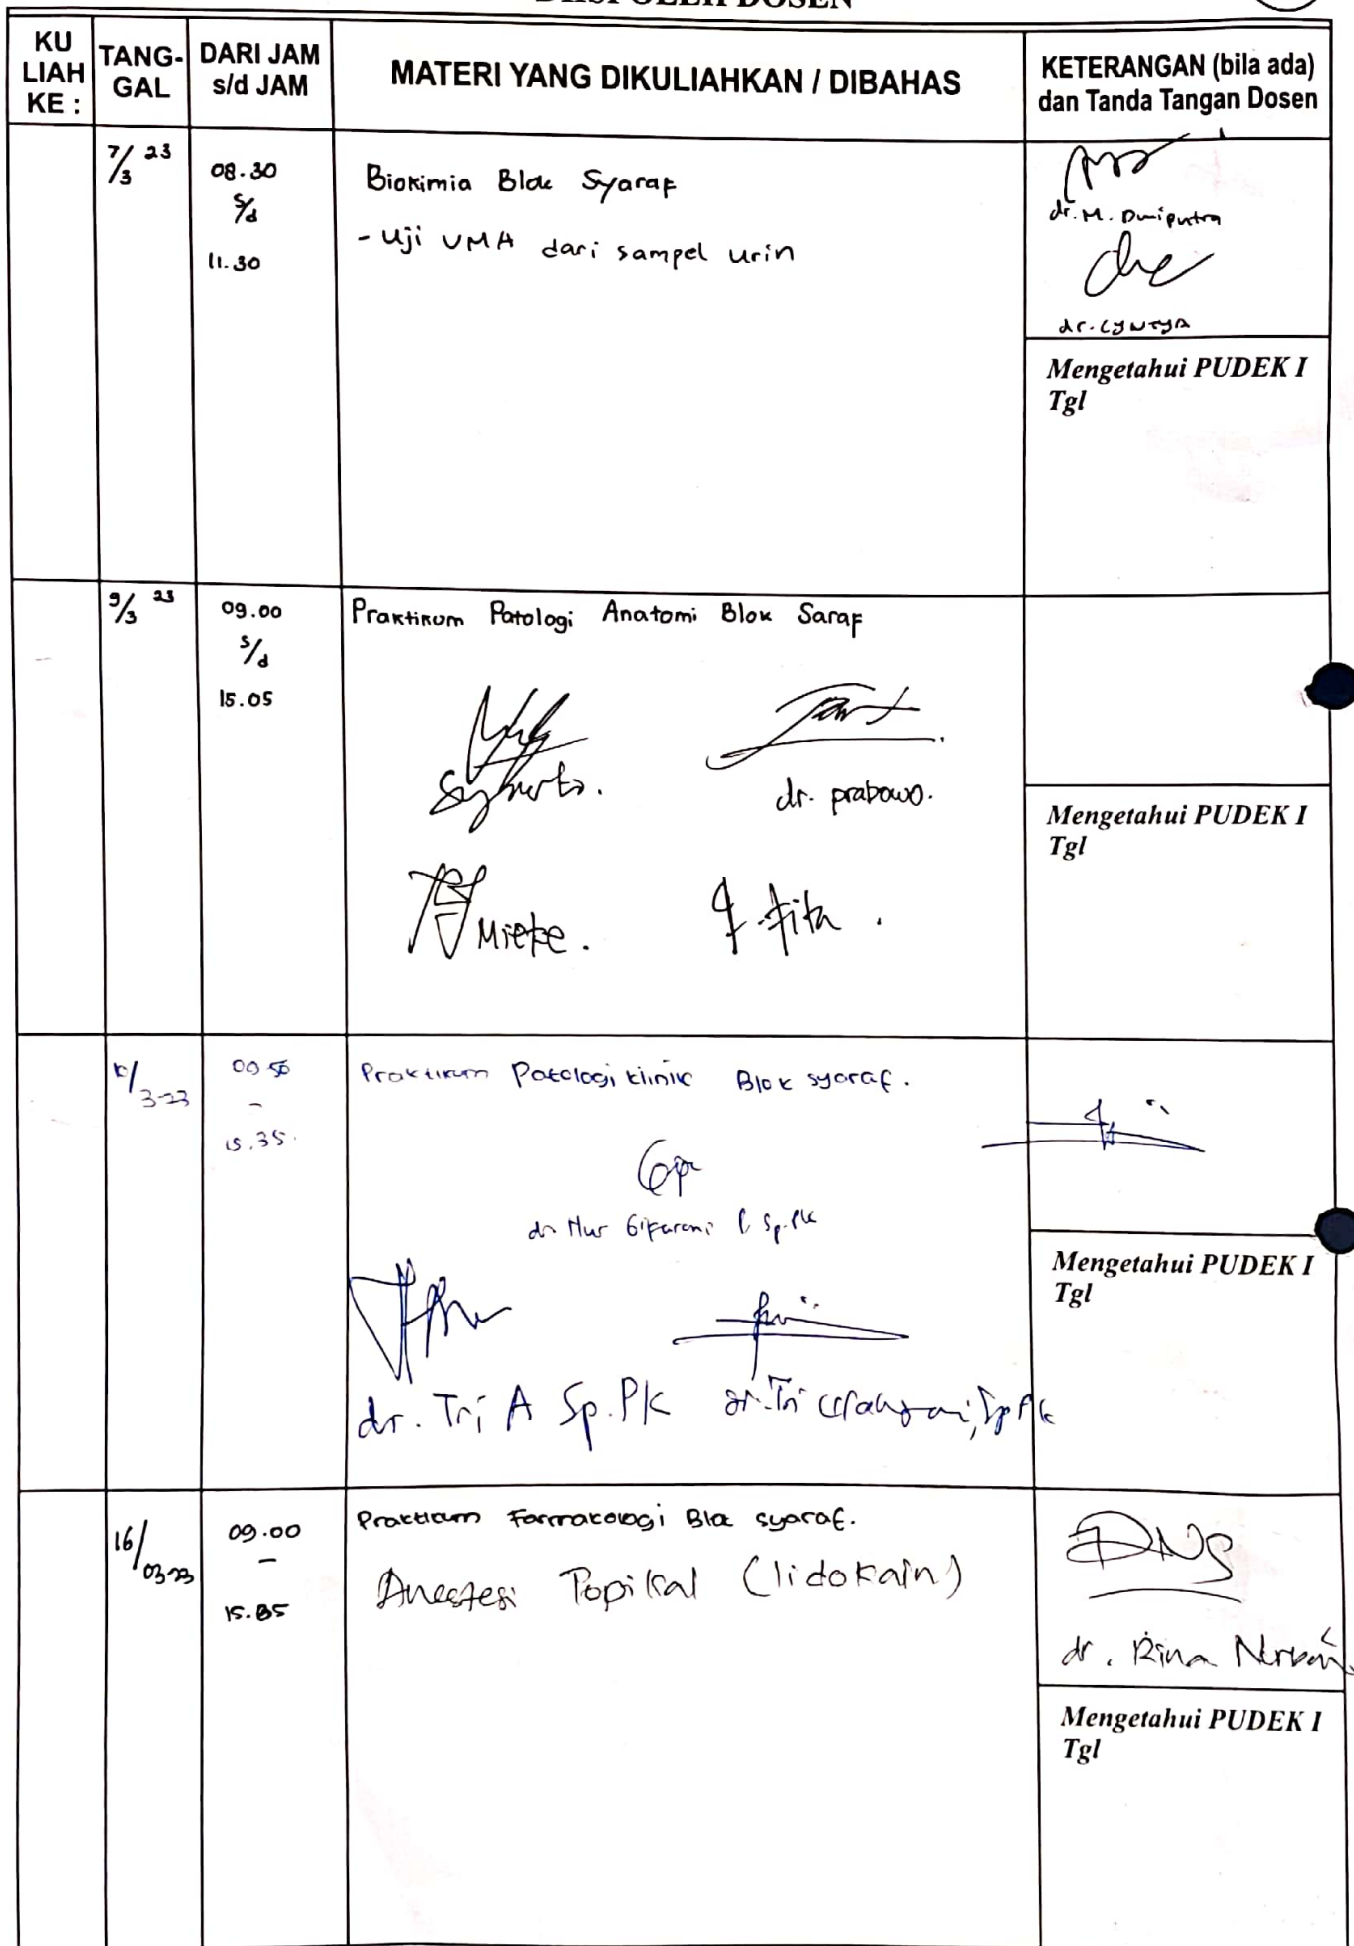 DIISI OLEH DOSEN
KU LIAH KE :
TANG-GAL
DARI JAM s/d JAM
MATERI YANG DIKULIAHKAN / DIBAHAS
KETERANGAN (bila ada) dan Tanda Tangan Dosen
7/3 23
08.30
s/d
11.30
Biokimia Blok Syaraf
- Uji VMA dari sampel urin
dr. M. Dwiputra
dr. CYNTYA
Mengetahui PUDEK I
Tgl
9/3 23
09.00
s/d
15.05
Praktikum Patologi Anatomi Blok Saraf
dr. prabowo.
Mieke.
fita.
Mengetahui PUDEK I
Tgl
3-23
09.50
-
15.35.
Praktikum Patologi klinik Blok syaraf.
dr Nur Gifarani Sp.PK
dr. Tri A Sp.PK
dr. Tri Sp PK
Mengetahui PUDEK I
Tgl
16/03-23
09.00
-
Praktikum Farmakologi Blok syaraf.
Anestesi Topikal (lidokain)
dr. Rina
Mengetahui PUDEK I
Tgl